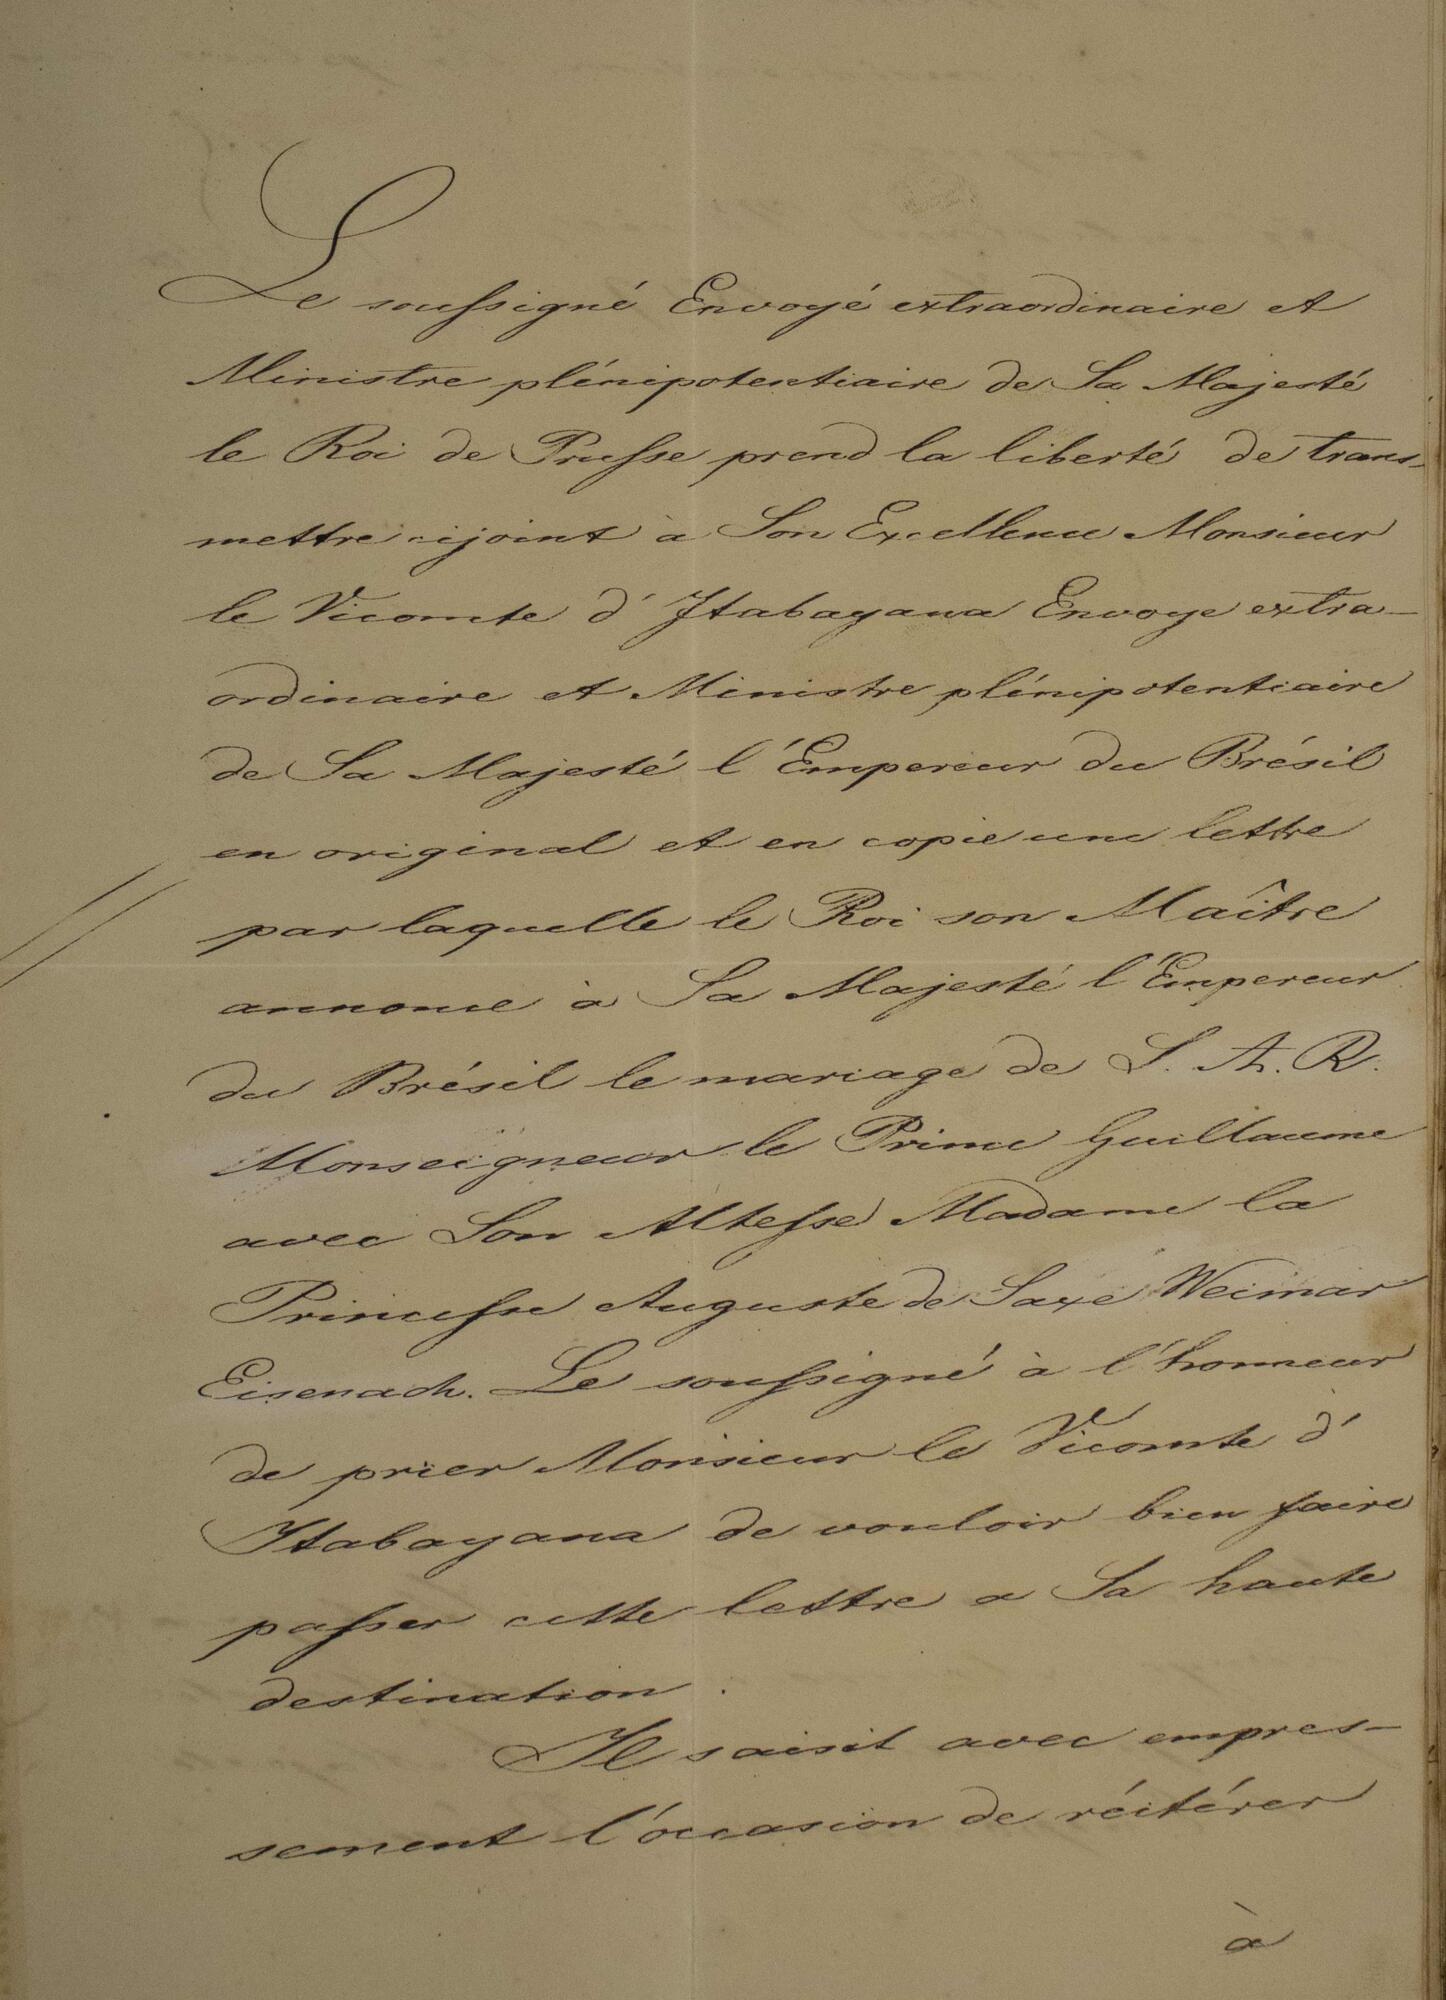 Le soussigné Envoyé extraordinaire et
Ministre plénipotentiaire de Sa Majesté
le Roi de Prusse prend la liberté de trans-
mettre cijoint à Son Excellence Monsieur
le Vicomte d'Itabayana Envoye extra-
ordinaire et Ministre plénipotentiaire
de Sa Majesté l'Empereur du Brésil
en original et en copie une lettre
par laquelle le Roi son Maître
annonce à Sa Majesté l'Empereur
du Brésil le mariage de S. A. R.
Monseigneur le Prince Guillaume
avec Son Altesse Madame la
Princesse Auguste de Saxe Weimar
Eisenach. Le soussigné à l'honneur
de prier Monsieur le Vicomte d'
Itabayana de vouloir bien faire
passer cette lettre a Sa haute
destination.
Il saisit avec empres-
sement l'occasion de réitérer
à